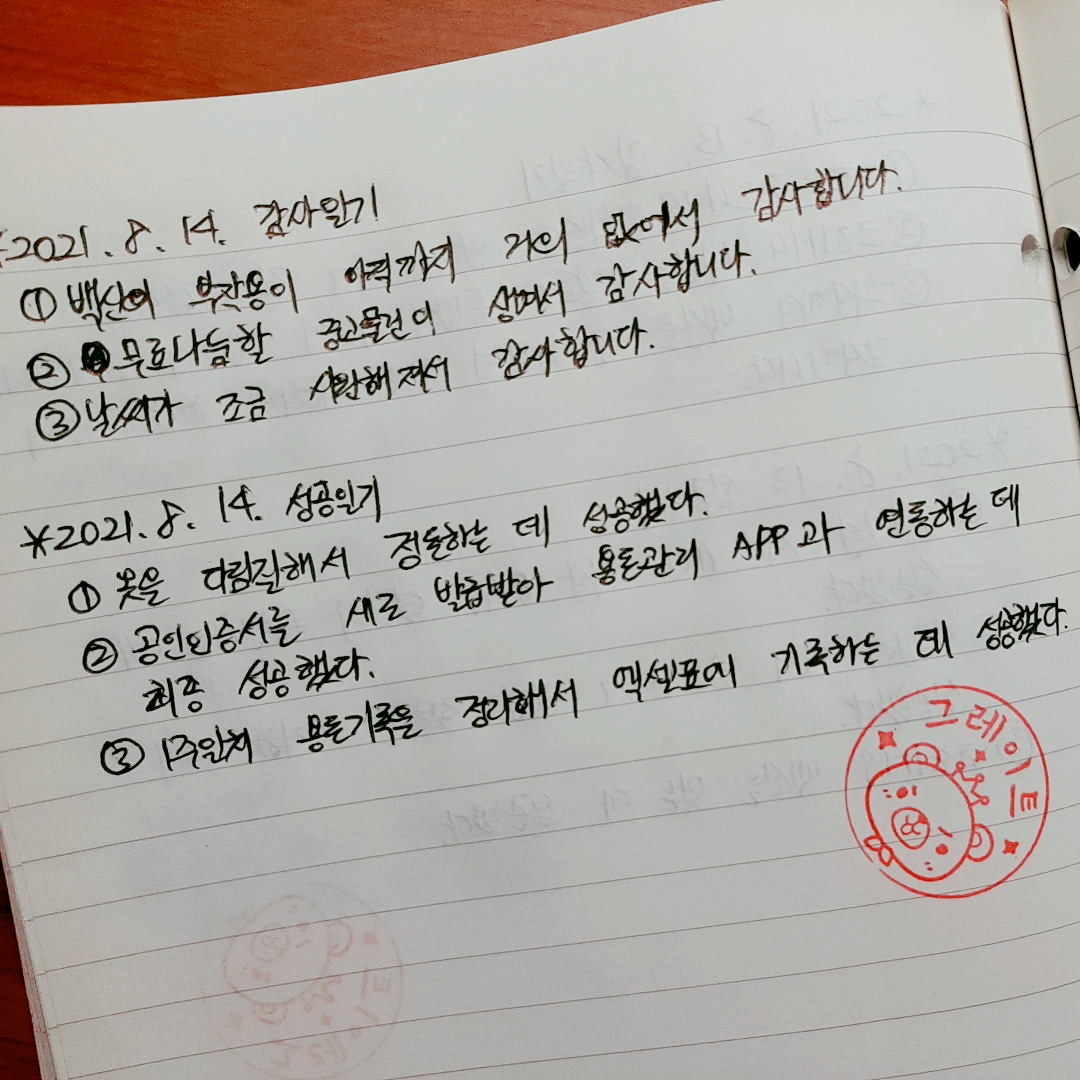 *2021. 8. 14. 감사일기
① 백신의 부작용이 아직까지 거의 없어서 감사합니다.
② 무료나눔할 중고물건이 생겨서 감사합니다.
③ 날씨가 조금 시원해져서 감사합니다.
*2021. 8. 14. 성공일기
① 옷을 다림질해서 정돈하는 데 성공했다.
② 공인인증서를 새로 발급받아 용돈관리 APP과 연동하는 데
최종 성공했다.
③ 1주일치 용돈기록을 정리해서 엑셀표에 기록하는 데 성공했다.
그레이트